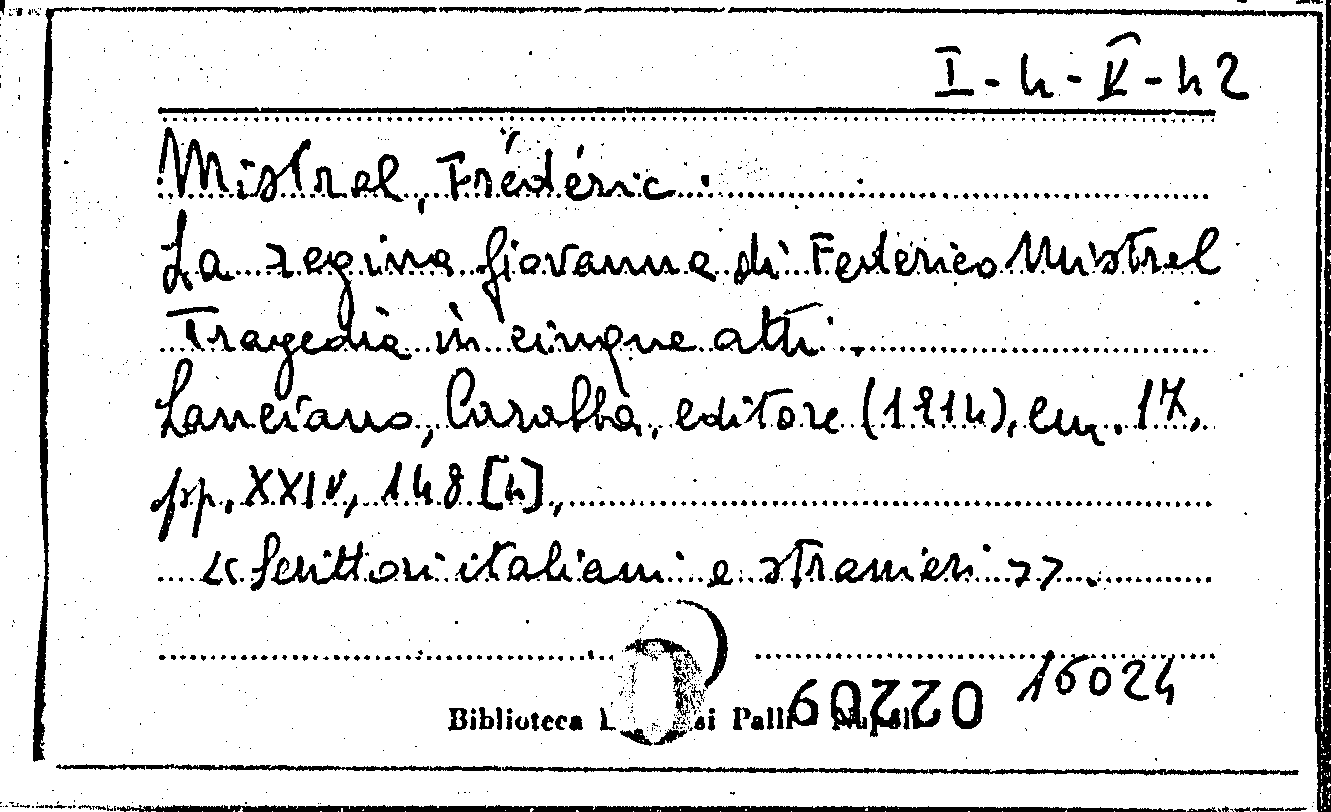 I-4-V-42
Mistral, Frédéric.
La regina Giovanna di Federico Mistral
Tragedia in cinque atti.
Lanciano, Carabba, editore (1914), cm. 17,
pp. XXIV, 148 [4],
«Scrittori italiani e stranieri».
16024
Biblioteca Palli
022209